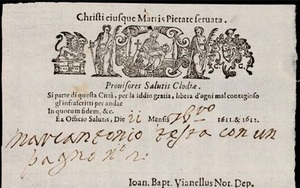 Christi eiusque Matris Pietate seruata.
Prouisores Salutis Clodiæ.
Si parte di questa Città, per la iddio gratia, libera d'ogni mal contagioso
gl'infrascritti per andar
In quorum fidem, &c.
Ex Officio Salutis, Die ii Mensis 1611. & 1612.
Marcantonio Testa con un
pagno nº 2
Ioan. Bapt. Vianellus Not. Dep.